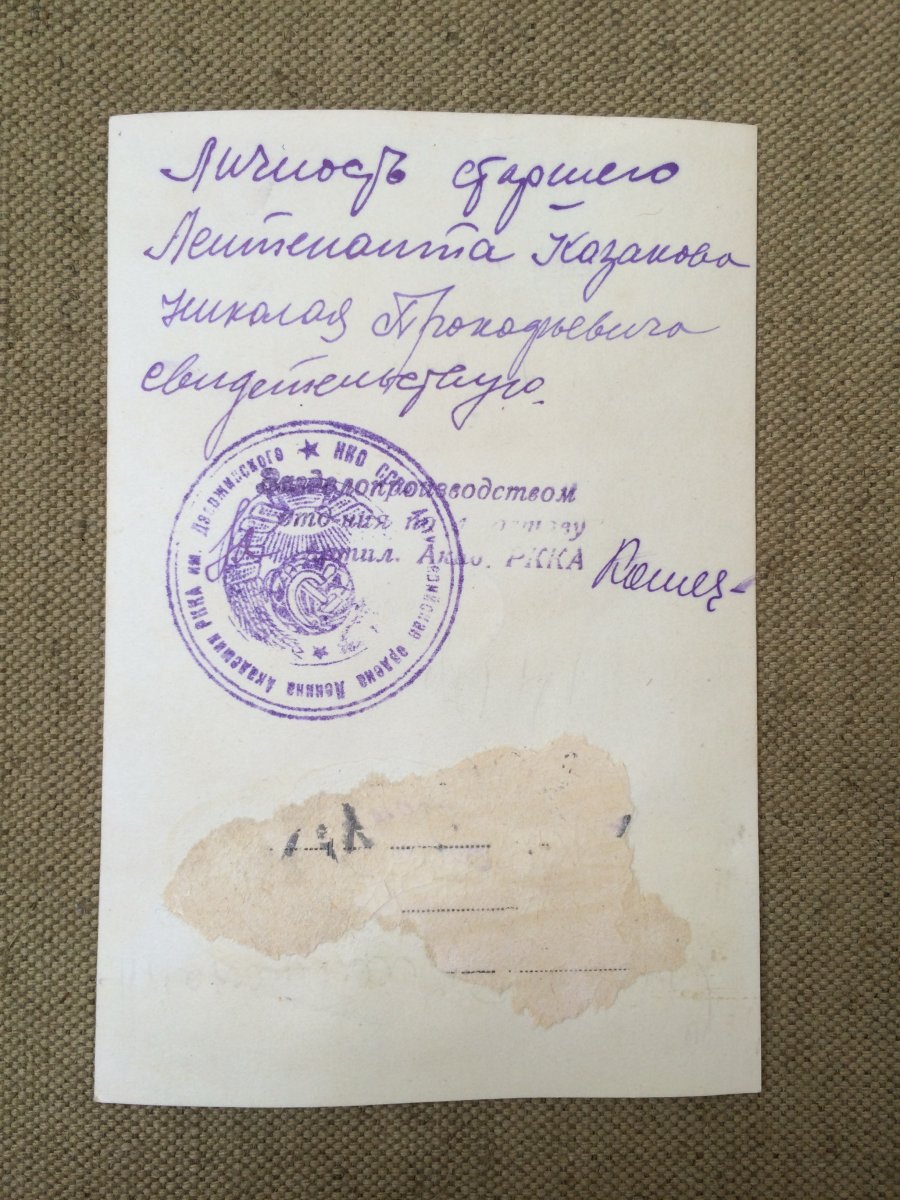 Личность старшего
Лейтенанта Казакова
Николая Прокофьевича
свидетельствую.
НКО СССР Артиллерийская ордена Ленина Академия РККА им. Дзержинского
Зав делопроизводством
отд-ния по л/составу
Артил. Акад. РККА